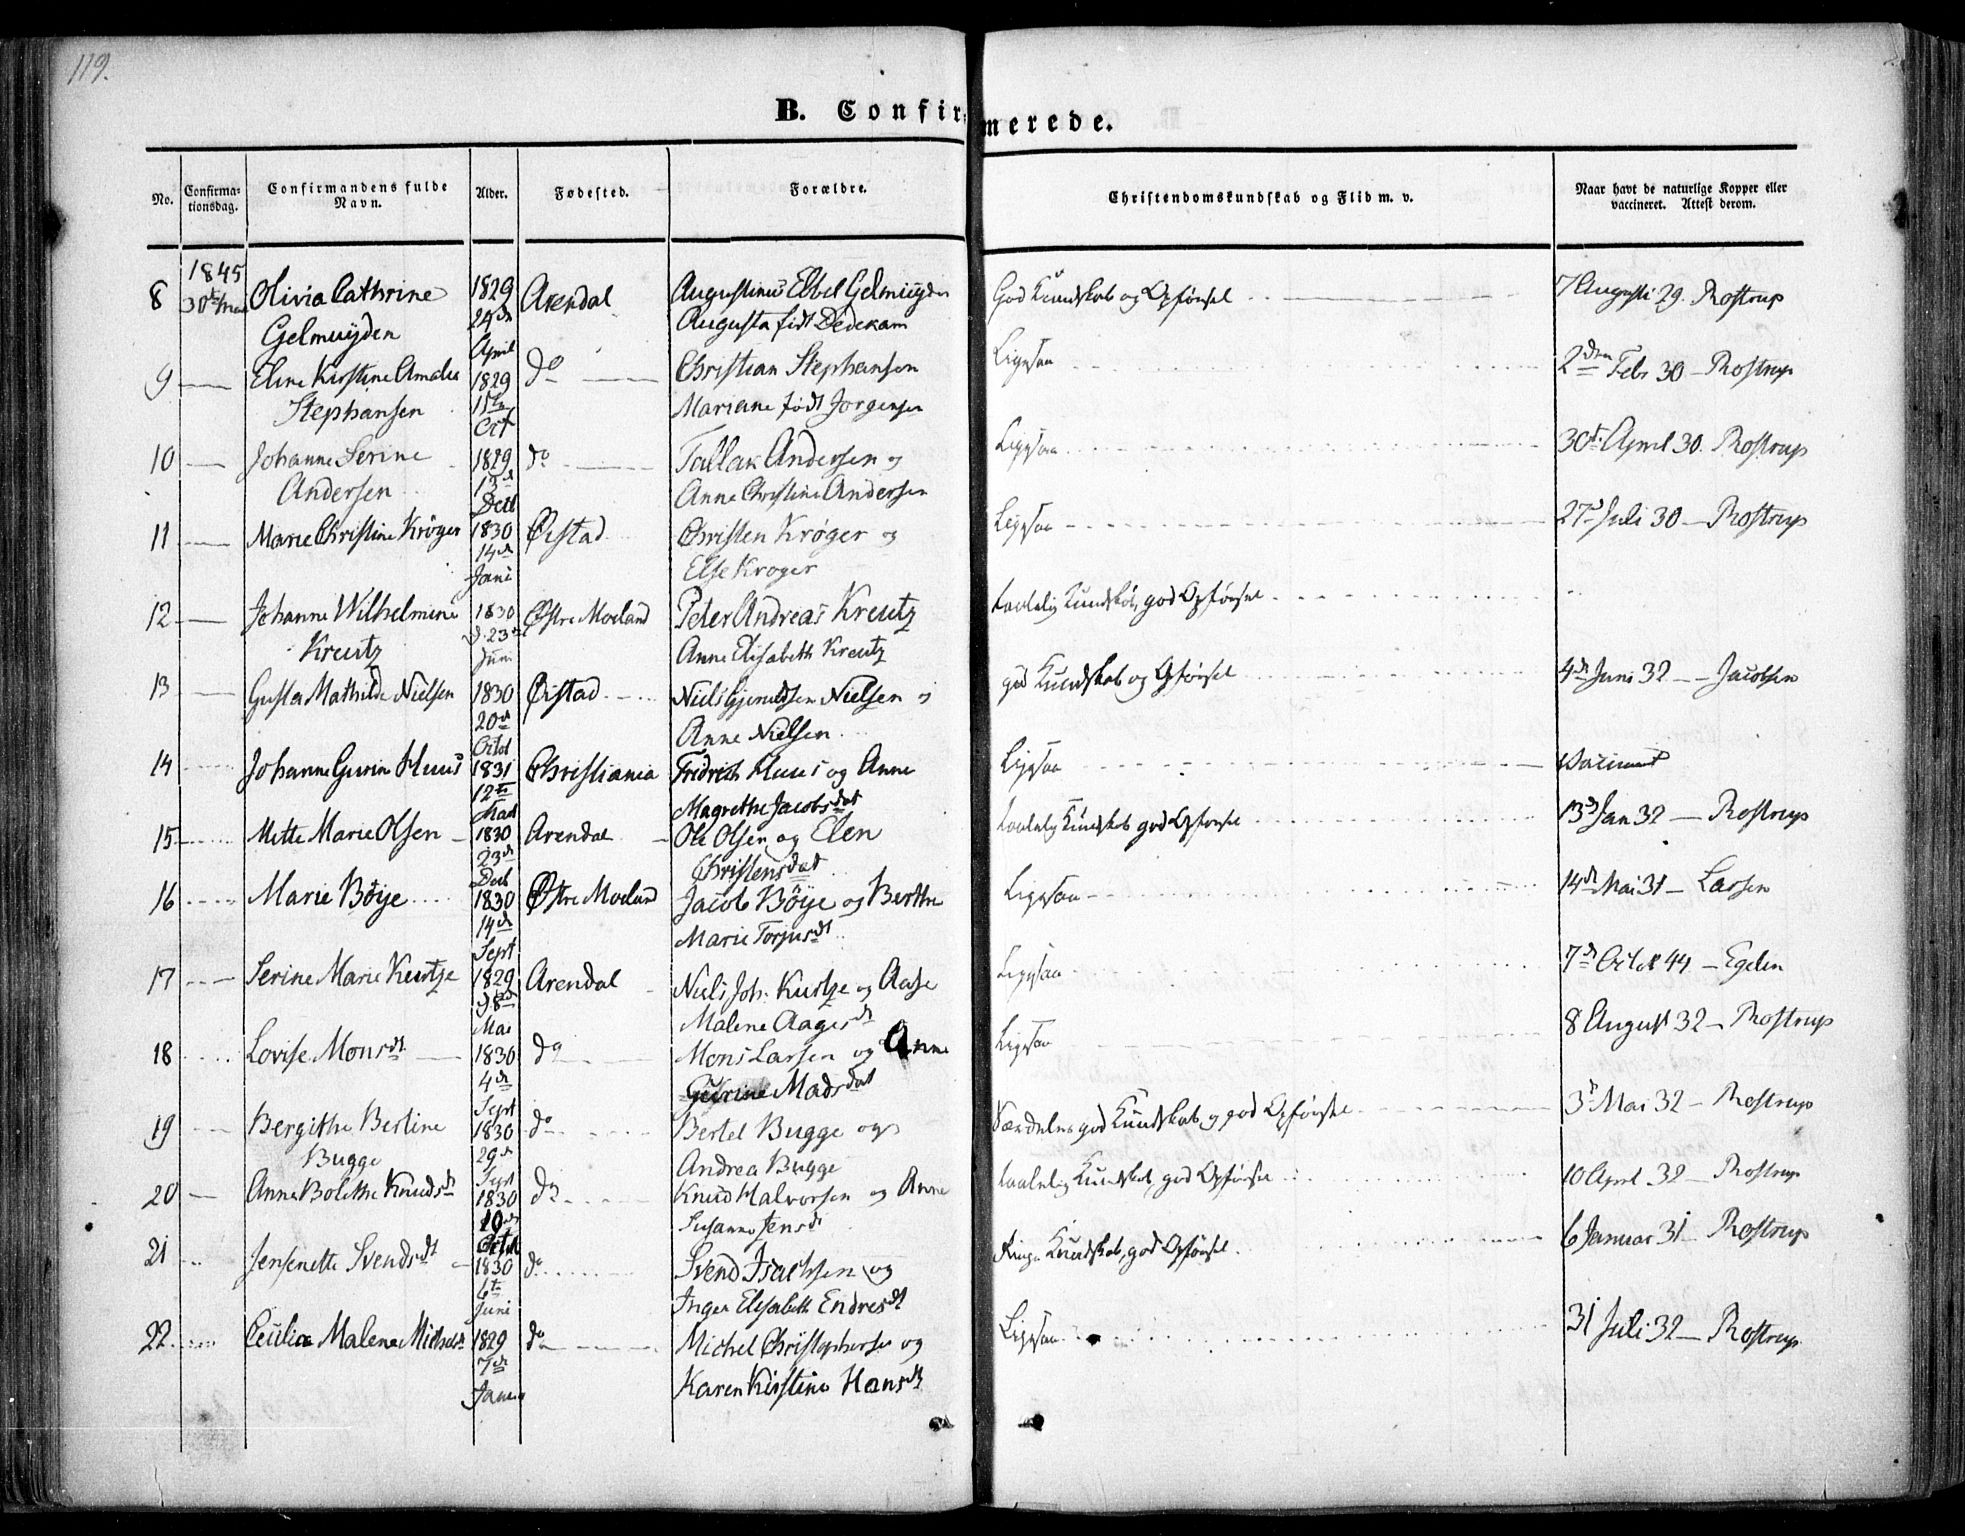 119.
B. Confirmerede.
No.
Confirma-
tionsdag.
Confirmandens fulde
Navn.
Alder.
Fødested.
Forældre.
Christendomskundskab og Flid m. v.
Naar havt de naturlige Kopper eller
vaccineret. Attest derom.
1845
8 30te Olivia Cathrine 1829 Arendal Augustinus Ebbel Gelmuyden God Kundskab og Opførsel 7 Augusti 29 Rostrup
Gelmuyden 24de April Augusta født Dedekam
9 Eline Kirstine Amalia 1829 do Christian Stephansen Ligesaa 2den Febr 30 – Rostrup
Stephansen 15de Oct Mariane født Jorgensen
10 Johanne Serine 1829 do Tallak Andersen og Ligesaa 30te April 30 Rostrup
Andersen 13de Decb Anne Christine Andersen
11 Marie Christine Krøger 1830 Øistad Christen Krøger og Ligesaa 27de Juli 30 – Rostrup
14de Juni Else Kroger
12 Johanne Wilhelmine 1830 Østre Moeland Peter Andreas Kreutz taalelig Kundskab, god Opførsel
Kreutz d. 23de Juni Anne Elisabeth Kreutz
13 Gusta Mathilde Nielsen 1830 Øistad Niels Gjeruldsen Nielsen og god Kundskab og Opførsel 4de Juni 32 – Jacobsen
20de Octob Anne Nielsen
14 Johanne Gurine Huus 1831 Christiania Fridrich Huus og Anne Ligesaa vaccineret
12te Magrethe Jacobsdat
15 Mette Marie Olsen 1830 Arendal Ole Olsen og Elen taalelig Kundskab god Opførsel 13de Jan 32 – Rostrup
23de Decb Christensdat
16 Marie Bøije 1830 Østre Moeland Jacob Bøije og Berthe Ligesaa 14de Mai 31 – Larsen
14de Sept Marie Torjusdt
17 Serine Marie Kurtze 1829 Arendal Niels Joh: Kurtze og Aase Ligesaa 7de Octob 44 – Egelin
d 8de Mai Malene Aagesdt
18 Lovise Monsdt 1830 do Mons Larsen og Anne Ligesaa 8 August 32 – Rostrup
4de Sept Gurine Madsdat
19 Bergithe Bertine 1830 do Bertel Bugge og Særdeles god Kundskab og god Opførsel 3de Mai 32 – Rostrup
Bugge 29de Sept Andrea Bugge
20 Anne Bolethe Knudsdt 1830 do Knud Halvorsen og Anne taalelig Kundskab, god Opførsel 10 April 32 – Rostrup
10de Octob Susanne Jensdt
21 Jensenette Svendsdt 1830 do Svend Isachsen og Ringe Kundskab, god Opførsel 6 Januar 31 Rostrup
6te Juni Inger Elisabeth Endresdt
22 Cecilia Malene Michelsdt 1829 do Michel Christophersen og Ligesaa 31 Juli 32 – Rostrup
7de Karen Kirstine Hansdt